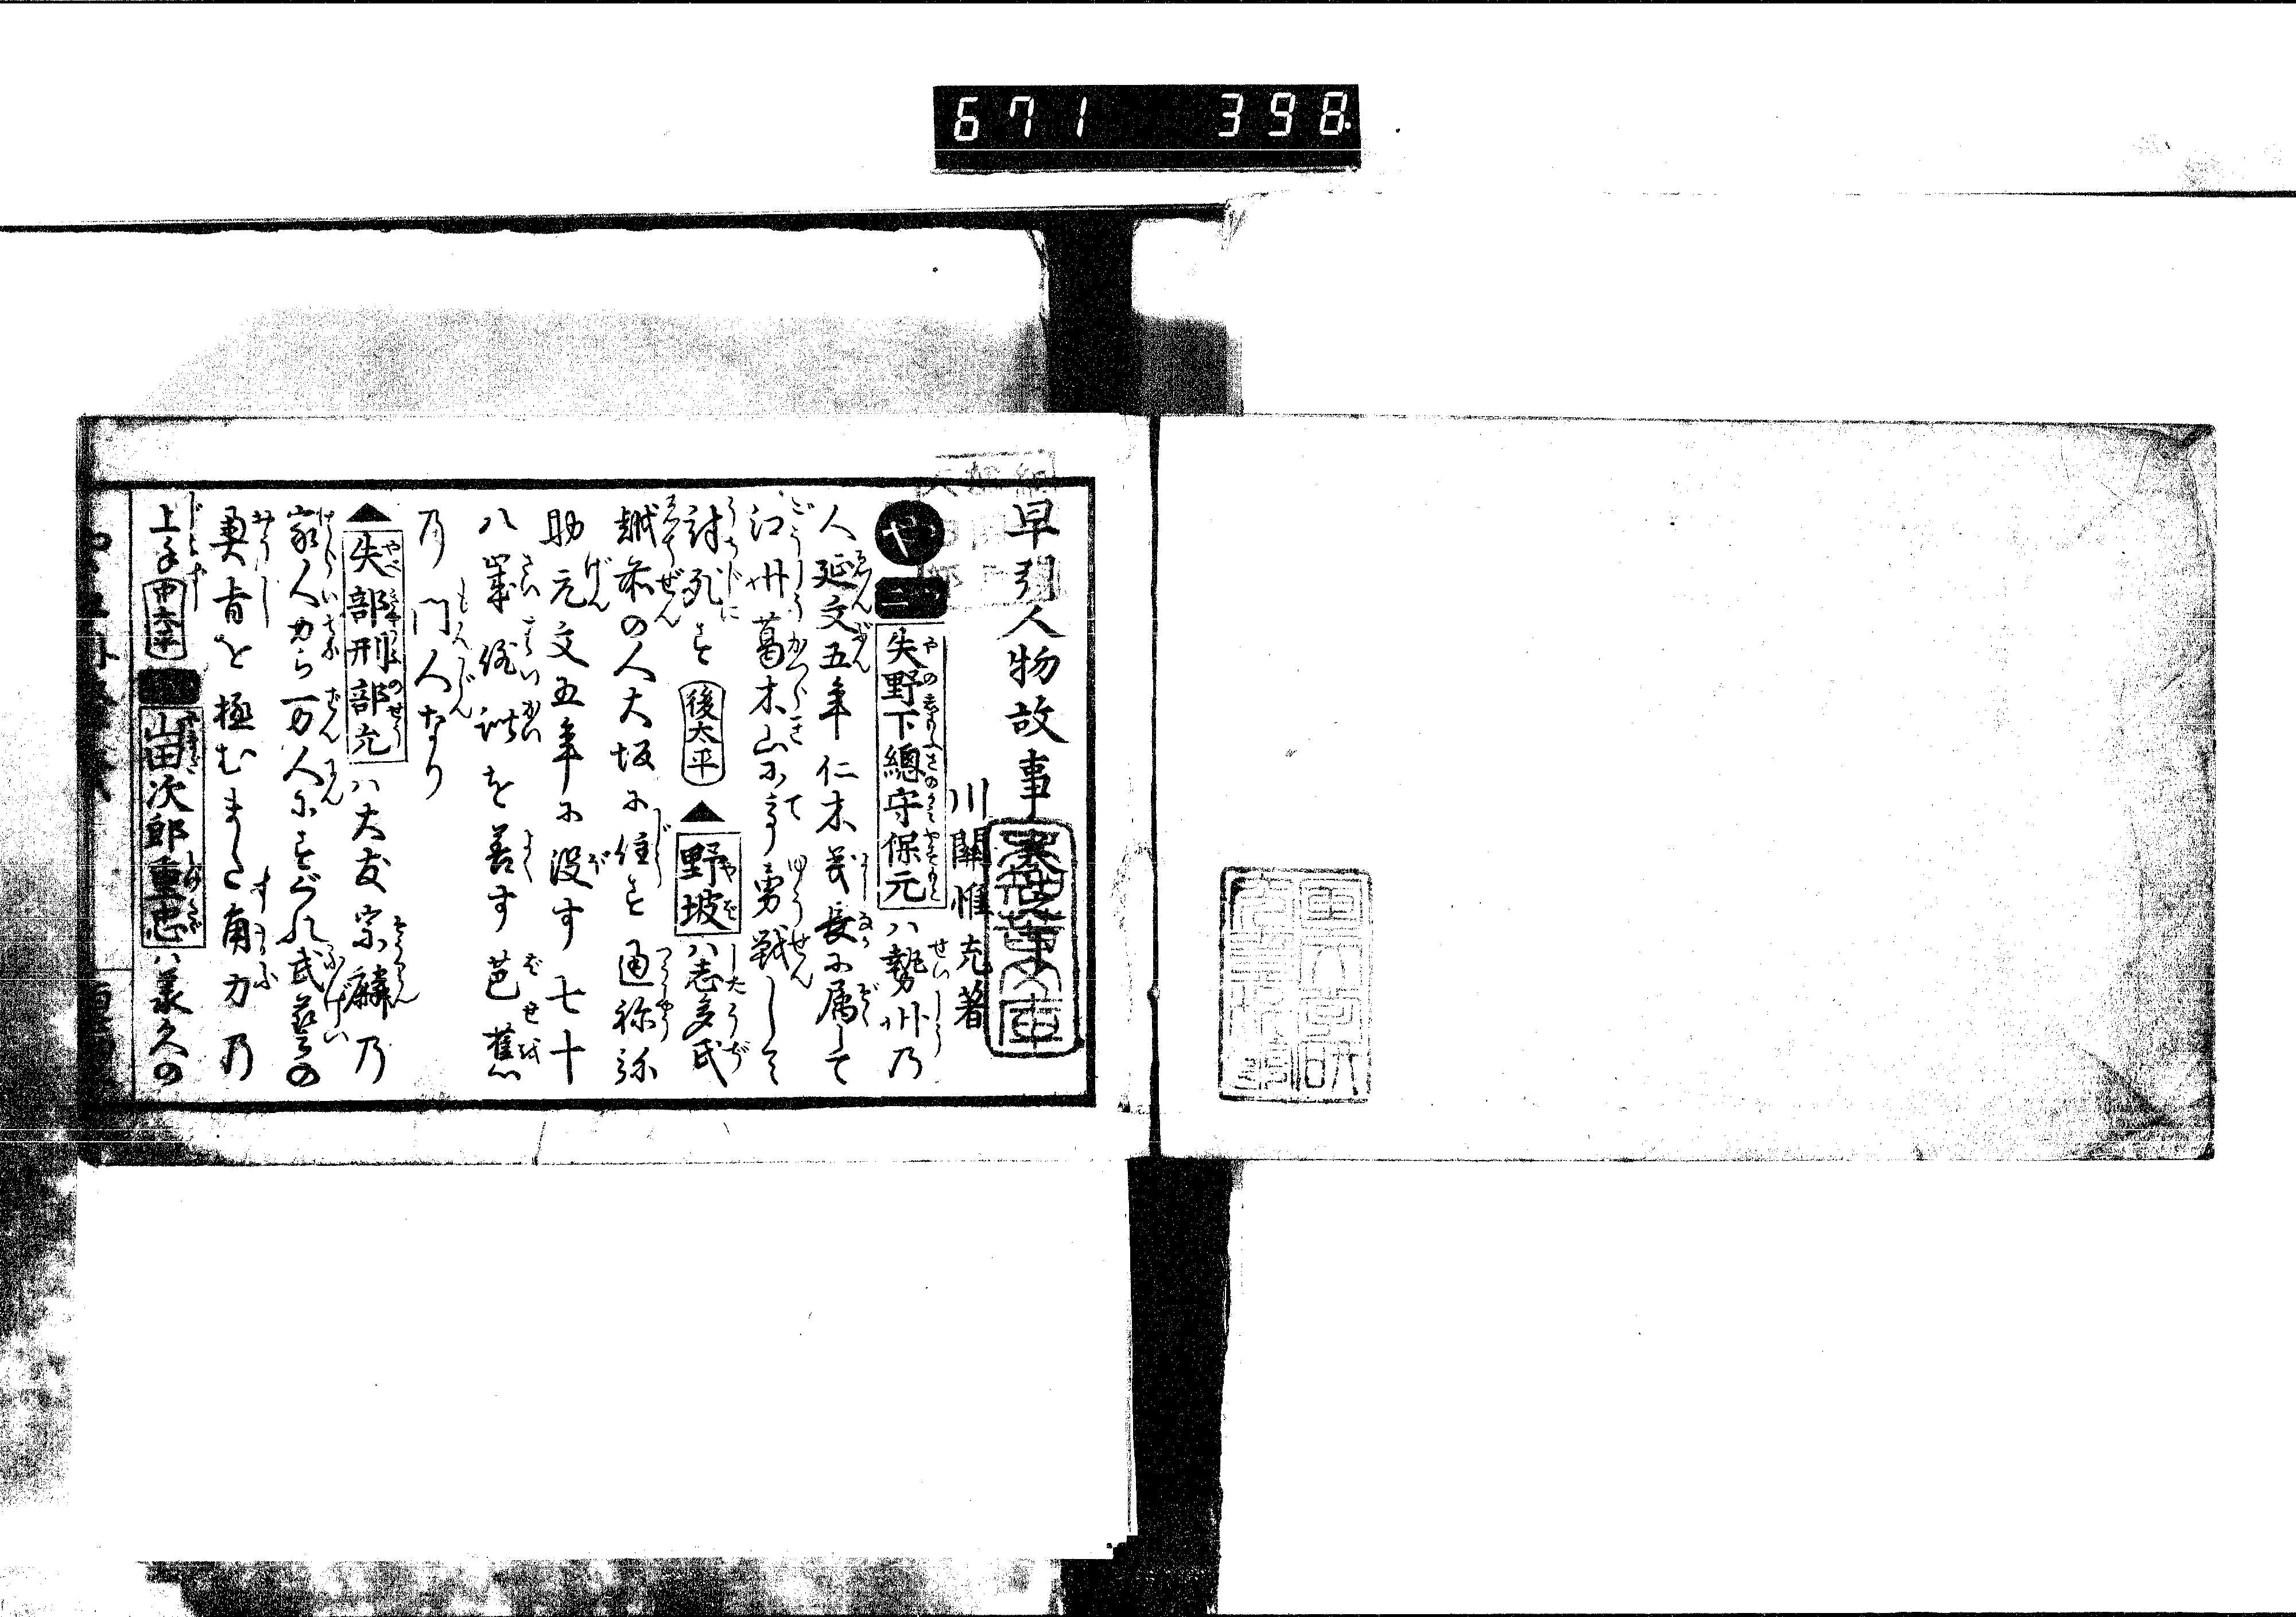 671 398
早引人物故事
川關惟充著
や 二 矢野下總守保元ハ勢州乃
人延文五年仁木義長に属して
江州葛木山にて勇戦して
討死す 後太平 ▲野坡ハ志多氏
越前の人大坂に住す通称弥
助元文五年に没す七十
八歳俳諧を善す芭蕉
乃門人なり
▲矢部刑部允ハ大友宗麟乃
家人力ら万人にすぐれ武藝の
奥旨を極むまた角力乃
上手
山田次郎重忠ハ承久の